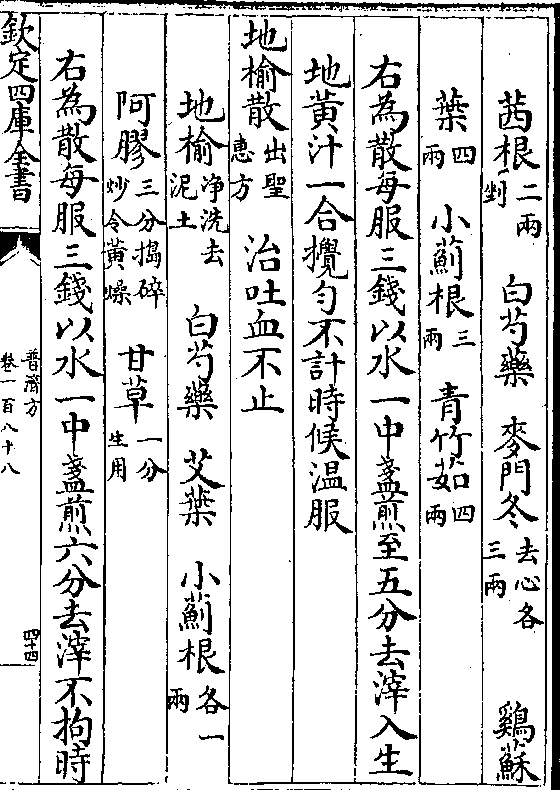 茜根二兩剉 白芍藥 麥門冬去心各三兩 鷄蘇
葉四兩 小薊根三兩 青竹茹四兩
右為散每服三錢以水一中盞煎至五分去滓入生
地黄汁一合攪勻不計時候温服
地榆散出聖惠方 治吐血不止
地榆净洗去泥土 白芍藥 艾葉 小薊根各一兩
阿膠三分搗碎炒令黄燥 甘草一分生用
右為散每服三錢以水一中盞煎六分去滓不拘時
欽定四庫全書
普濟方
卷一百八十八
四十四